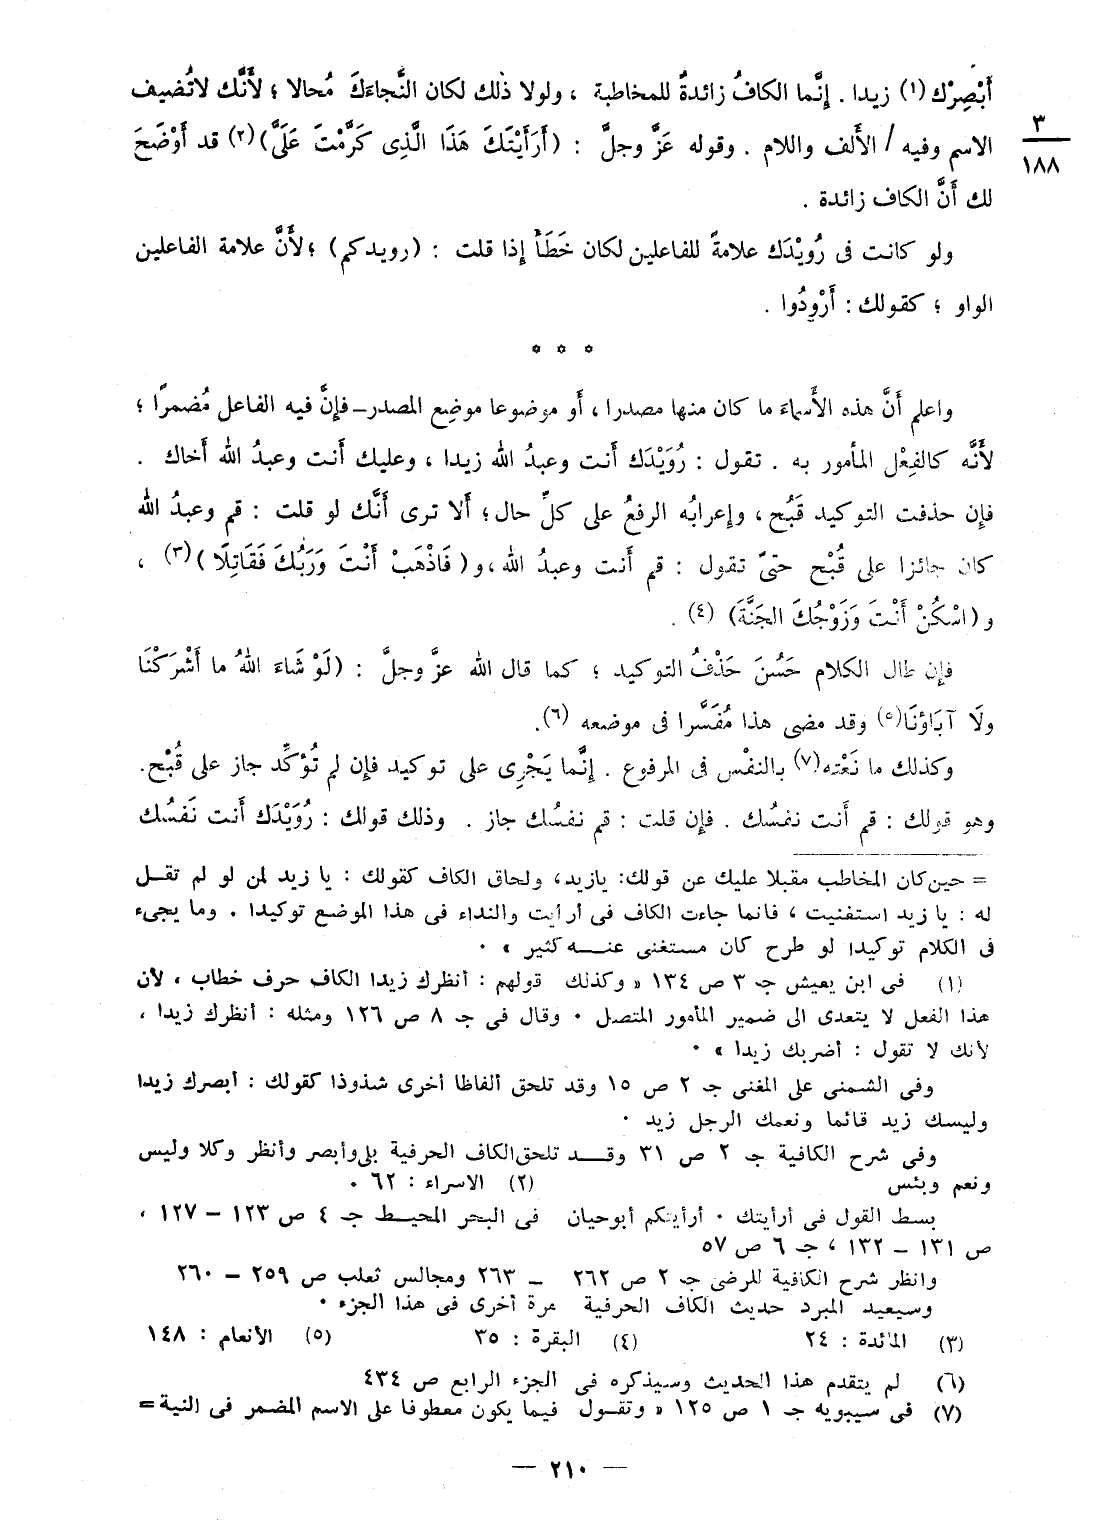 أَبْصِرْك (١) زيدا . إنَّما الكافُ زائدةٌ للمخاطبة ، ولولا ذلك لكان النَّجاءَكَ مُحالا ؛ لأَنَّك لاتُضيف
٣
١٨٨
الاسم وفيه / الأَلف واللام . وقوله عَزَّ وجلَّ : (أَرَأَيْتَكَ هَذَا الَّذِى كَرَّمْتَ عَلَىَّ) (٢) قد أَوْضَحَ
لك أَنَّ الكاف زائدة .
ولو كانت فى رُوَيْدَك علامةً للفاعلين لكان خَطَأً إذا قلت : (رويدكم) ؛ لأَنَّ علامة الفاعلين
الواو ؛ كقولك : أَرْوِدُوا .
* * *
واعلم أَنَّ هذه الأَسماءَ ما كان منها مصدرا ، أَو موضوعا موضِع المصدر ــ فإنَّ فيه الفاعل مُضمرًا ؛
لأَنَّه كالفِعْل المأمور به . تقول : رُوَيْدَك أَنت وعبدُ الله زيدا ، وعليك أَنت وعبدُ الله أَخاك .
فإن حذفت التوكيد قَبُح ، وإعرابُه الرفعُ على كلِّ حال ؛ أَلا ترى أَنَّك لو قلت : قم وعبدُ الله
كان جائزا على قُبْح حتىَّ تقول : قم أَنت وعبدُ الله ، و (فَاذْهَبْ أَنْتَ وَرَبُّكَ فَقَاتِلَا) (٣) ،
و (اسْكُنْ أَنْتَ وَزَوْجُكَ الجَنَّةَ) (٤) .
فإن طال الكلام حَسُنَ حَذْفُ التوكيد ؛ كما قال الله عزَّ وجلَّ : (لَوْ شَاءَ اللهُ ما أَشْرَكْنَا
ولَا آبَاؤنَا) (٥) وقد مضى هذا مُفَسَّرا فى موضعه (٦) .
وكذلك ما نَعْته (٧) بالنفْس فى المرفوع . إنَّما يَجْرِى على توكيد فإن لم تُؤكِّد جاز على قُبْح .
وهو قولك : قم أَنت نفسُك . فإن قلت : قم نفسُك جاز . وذلك قولك : رُوَيْدَك أَنت نَفسُك
= حين كان المخاطب مقبلا عليك عن قولك: يازيد، ولحاق الكاف كقولك : يا زيد لمن لو لم تقل
له : يا زيد استغنيت ، فانما جاءت الكاف فى أرأيت والنداء فى هذا الموضع توكيدا . وما يجىء
فى الكلام توكيدا لو طرح كان مستغنى عنه كثير » .
(١) فى ابن يعيش جـ ٣ ص ١٣٤ « وكذلك قولهم : أنظرك زيدا الكاف حرف خطاب ، لأن
هذا الفعل لا يتعدى الى ضمير المأمور المتصل . وقال فى جـ ٨ ص ١٢٦ ومثله : أنظرك زيدا ،
لأنك لا تقول : أضربك زيدا » .
وفى الشمنى على المغنى جـ ٢ ص ١٥ وقد تلحق ألفاظا أخرى شذوذا كقولك : أبصرك زيدا
وليسك زيد قائما ونعمك الرجل زيد .
وفى شرح الكافية جـ ٢ ص ٣١ وقد تلحق الكاف الحرفية بلى وأبصر وأنظر وكلا وليس
ونعم وبئس (٢) الاسراء : ٦٢ .
بسط القول فى أرأيتك . أرأيتكم أبوحيان فى البحر المحيط جـ ٤ ص ١٢٣ – ١٢٧ ،
ص ١٣١ – ١٣٢ ، جـ ٦ ص ٥٧
وانظر شرح الكافية للرضى جـ ٢ ص ٢٦٢ – ٢٦٣ ومجالس ثعلب ص ٢٥٩ – ٢٦٠
وسيعيد المبرد حديث الكاف الحرفية مرة أخرى فى هذا الجزء .
(٣) المائدة : ٢٤ (٤) البقرة : ٣٥ (٥) الأنعام : ١٤٨
(٦) لم يتقدم هذا الحديث وسيذكره فى الجزء الرابع ص ٤٣٤
(٧) فى سيبويه جـ ١ ص ١٢٥ « وتقول فيما يكون معطوفا على الاسم المضمر فى النية =
— ٢١٠ —